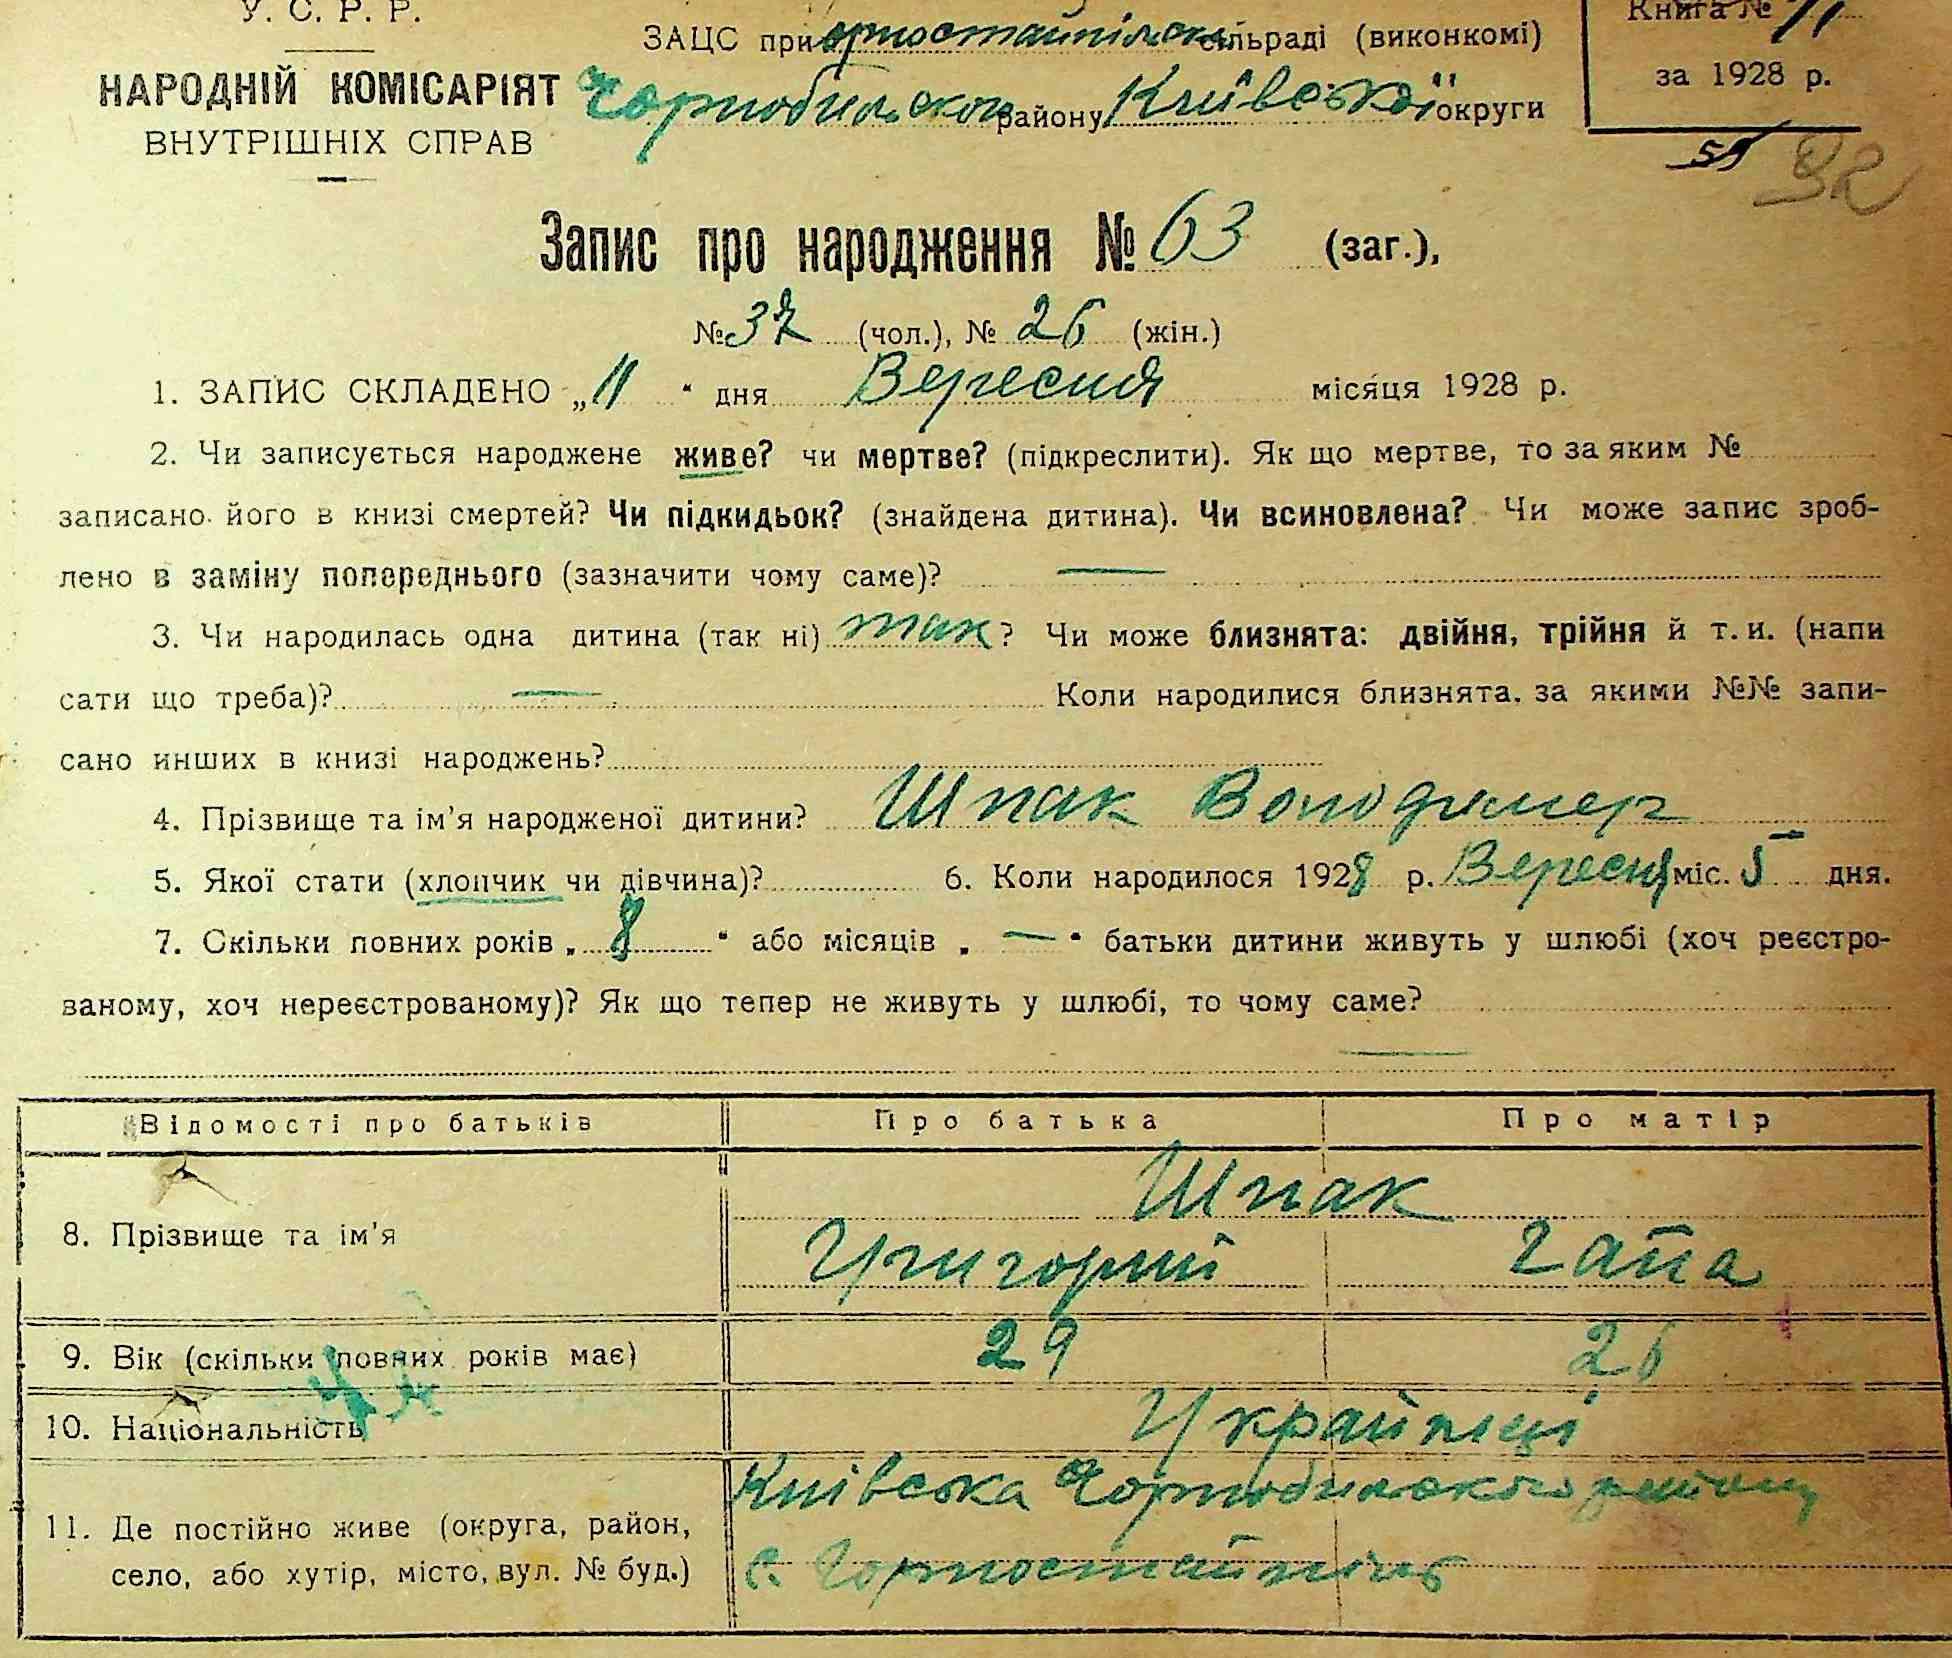 У. С. Р. Р.
НАРОДНІЙ КОМІСАРІЯТ
ВНУТРІШНІХ СПРАВ
ЗАЦС при Горностайпільськ сільраді (виконкомі)
Чорнобильского району Київської округи
Книга №
за 1928 р.
Запис про народження № 63 (заг.),
№ 37 (чол.), № 26 (жін.)
1. ЗАПИС СКЛАДЕНО „11“ дня Вересня місяця 1928 р.
2. Чи записується народжене живе? чи мертве? (підкреслити). Як що мертве, то за яким №
записано його в книзі смертей? Чи підкидьок? (знайдена дитина). Чи всиновлена? Чи може запис зроб-
лено в заміну попереднього (зазначити чому саме)? —
3. Чи народилась одна дитина (так ні) так? Чи може близнята: двійня, трійня й т. и. (напи
сати що треба)? — Коли народилися близнята. за якими №№ запи-
сано инших в книзі народжень?
4. Прізвище та ім'я народженої дитини? Шпак Володимер
5. Якої стати (хлопчик чи дівчина)? 6. Коли народилося 1928 р. Вересня міс. 5 дня.
7. Скільки повних років „8“ або місяців „—“ батьки дитини живуть у шлюбі (хоч реєстро-
ваному, хоч нереєстрованому)? Як що тепер не живуть у шлюбі, то чому саме?
—
Відомості про батьків Про батька Про матір
Шпак
8. Прізвище та ім'я Григорий Гапа
9. Вік (скільки повних років має) 29 26
10. Національність Українці
Київська Чорнобильского району
11. Де постійно живе (округа, район,
село, або хутір, місто, вул. № буд.) с. Горностайпіль